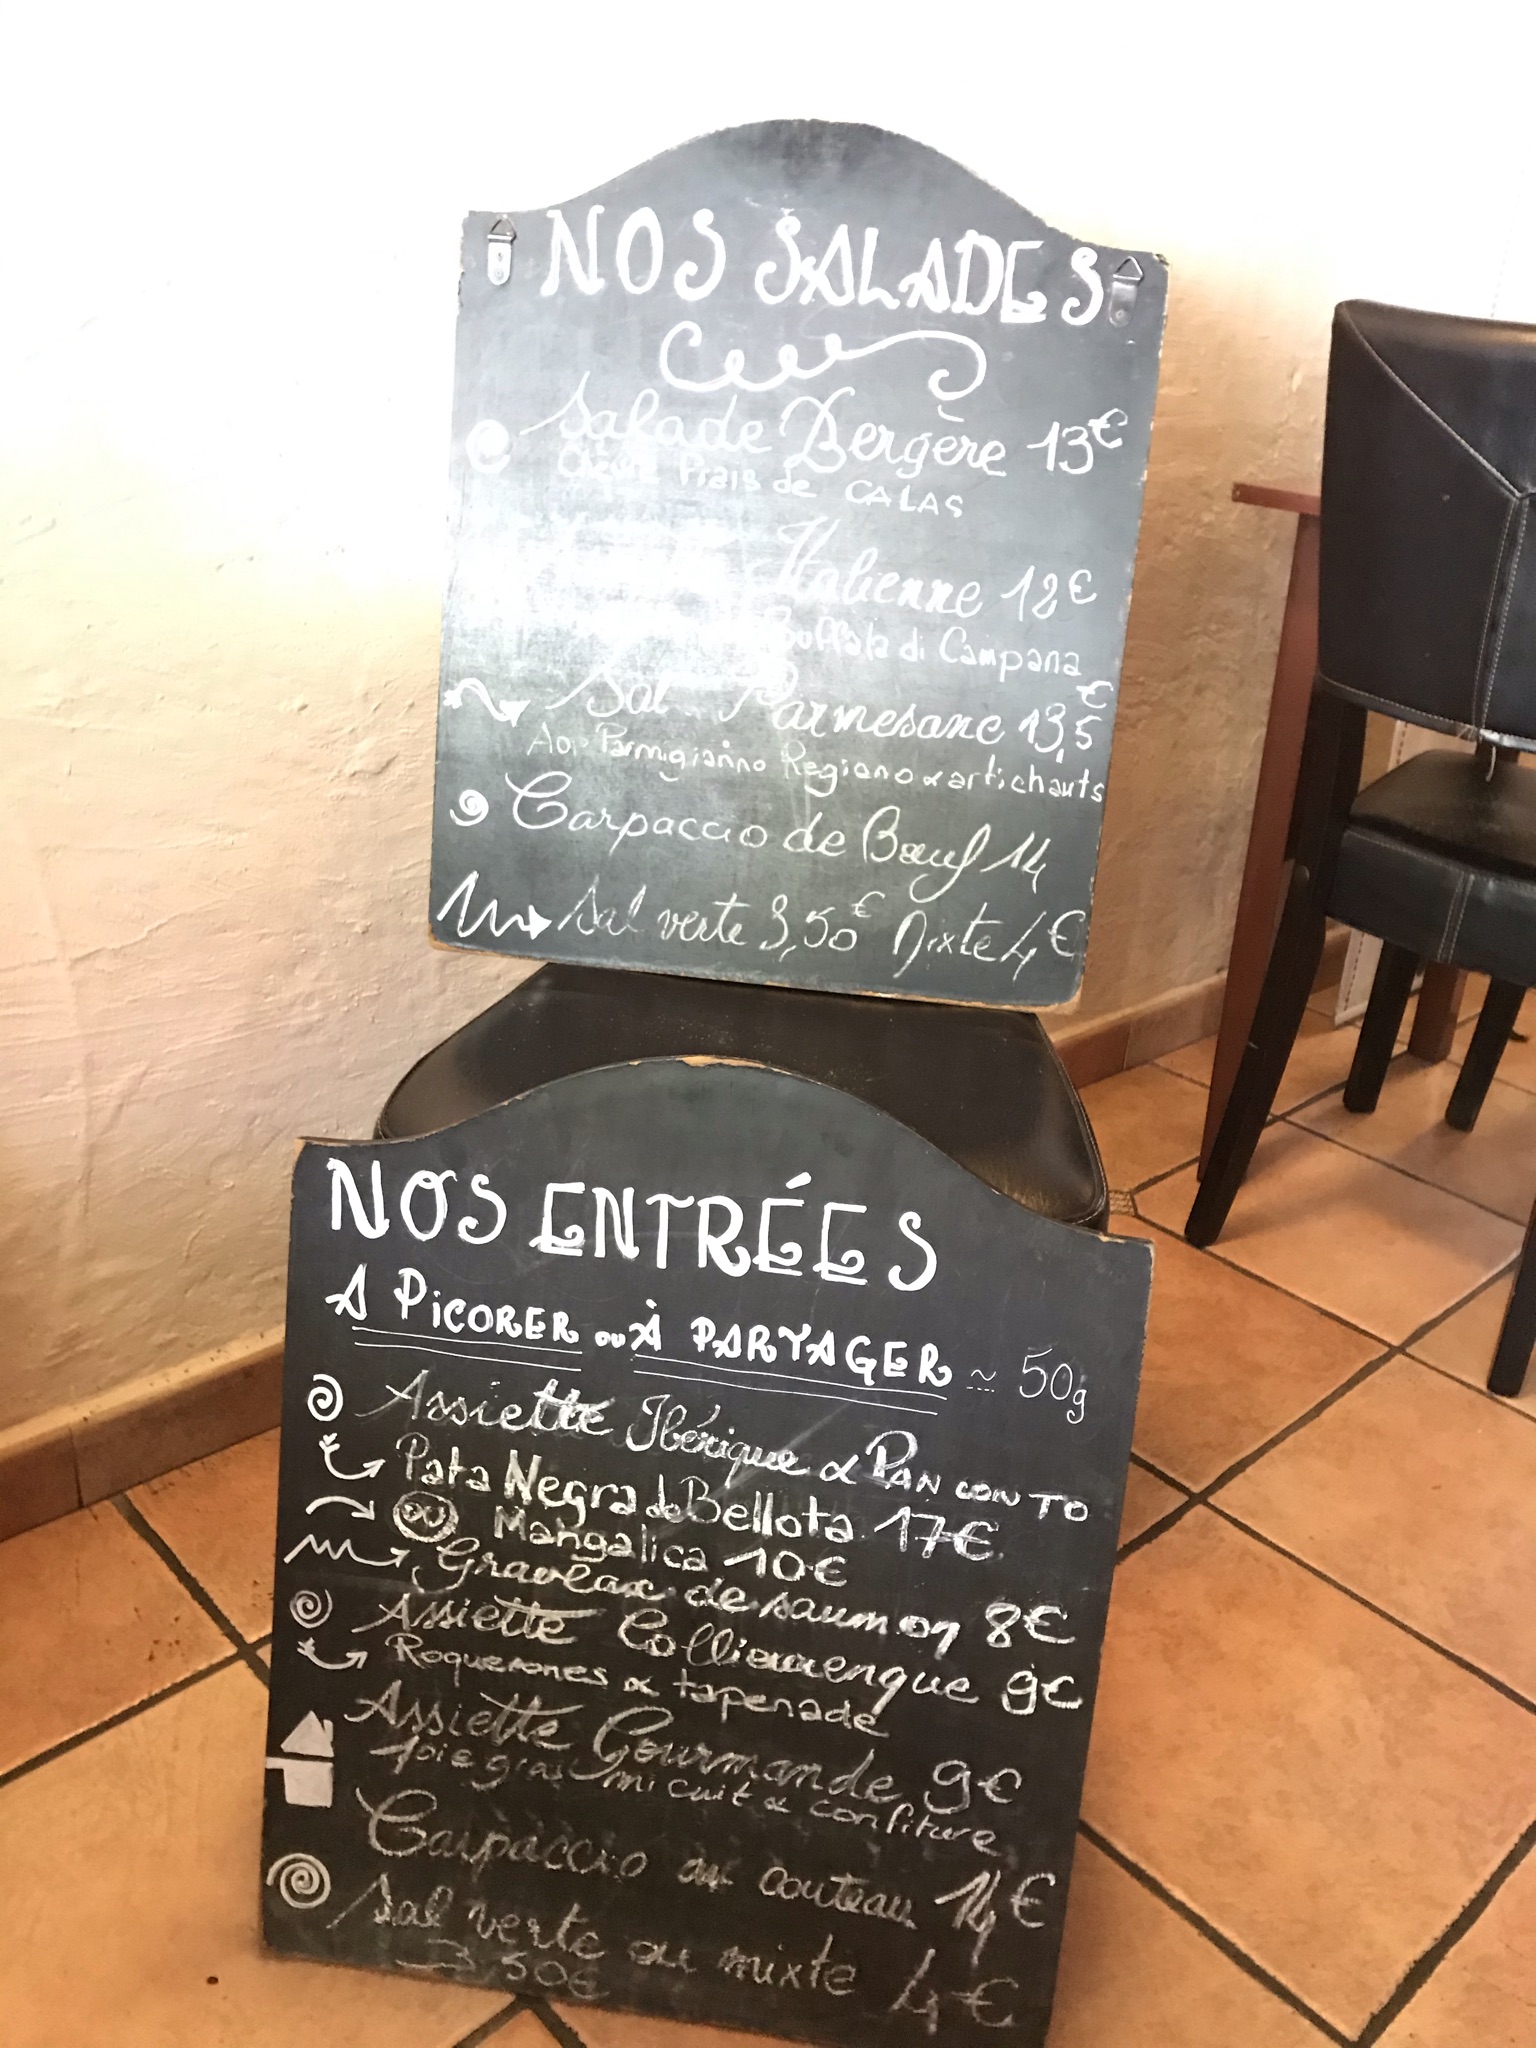 NOS SALADES
Salade Bergère 13€
Chèvre Frais de CALAS
Italienne 12€
Buffala di Campana
Sal Parmesane 13,5€
Aop Parmigianno Regiano & artichauts
Carpaccio de Bœuf 14
Sal verte 3,50€ Mixte 4€
NOS ENTRÉES
A PiCORER ou À PARTAGER ~ 50g
Assiette Ibérique & PAN con TO
Pata Negra de Bellota 17€
ou Mangalica 10€
Gravlax de saumon 8€
Assiette Collieurenque 9€
Roquerones & tapenade
Assiette Gourmande 9€
foie gras mi cuit & confiture
Carpaccio au couteau 14€
Sal verte ou mixte 4€
3,50€